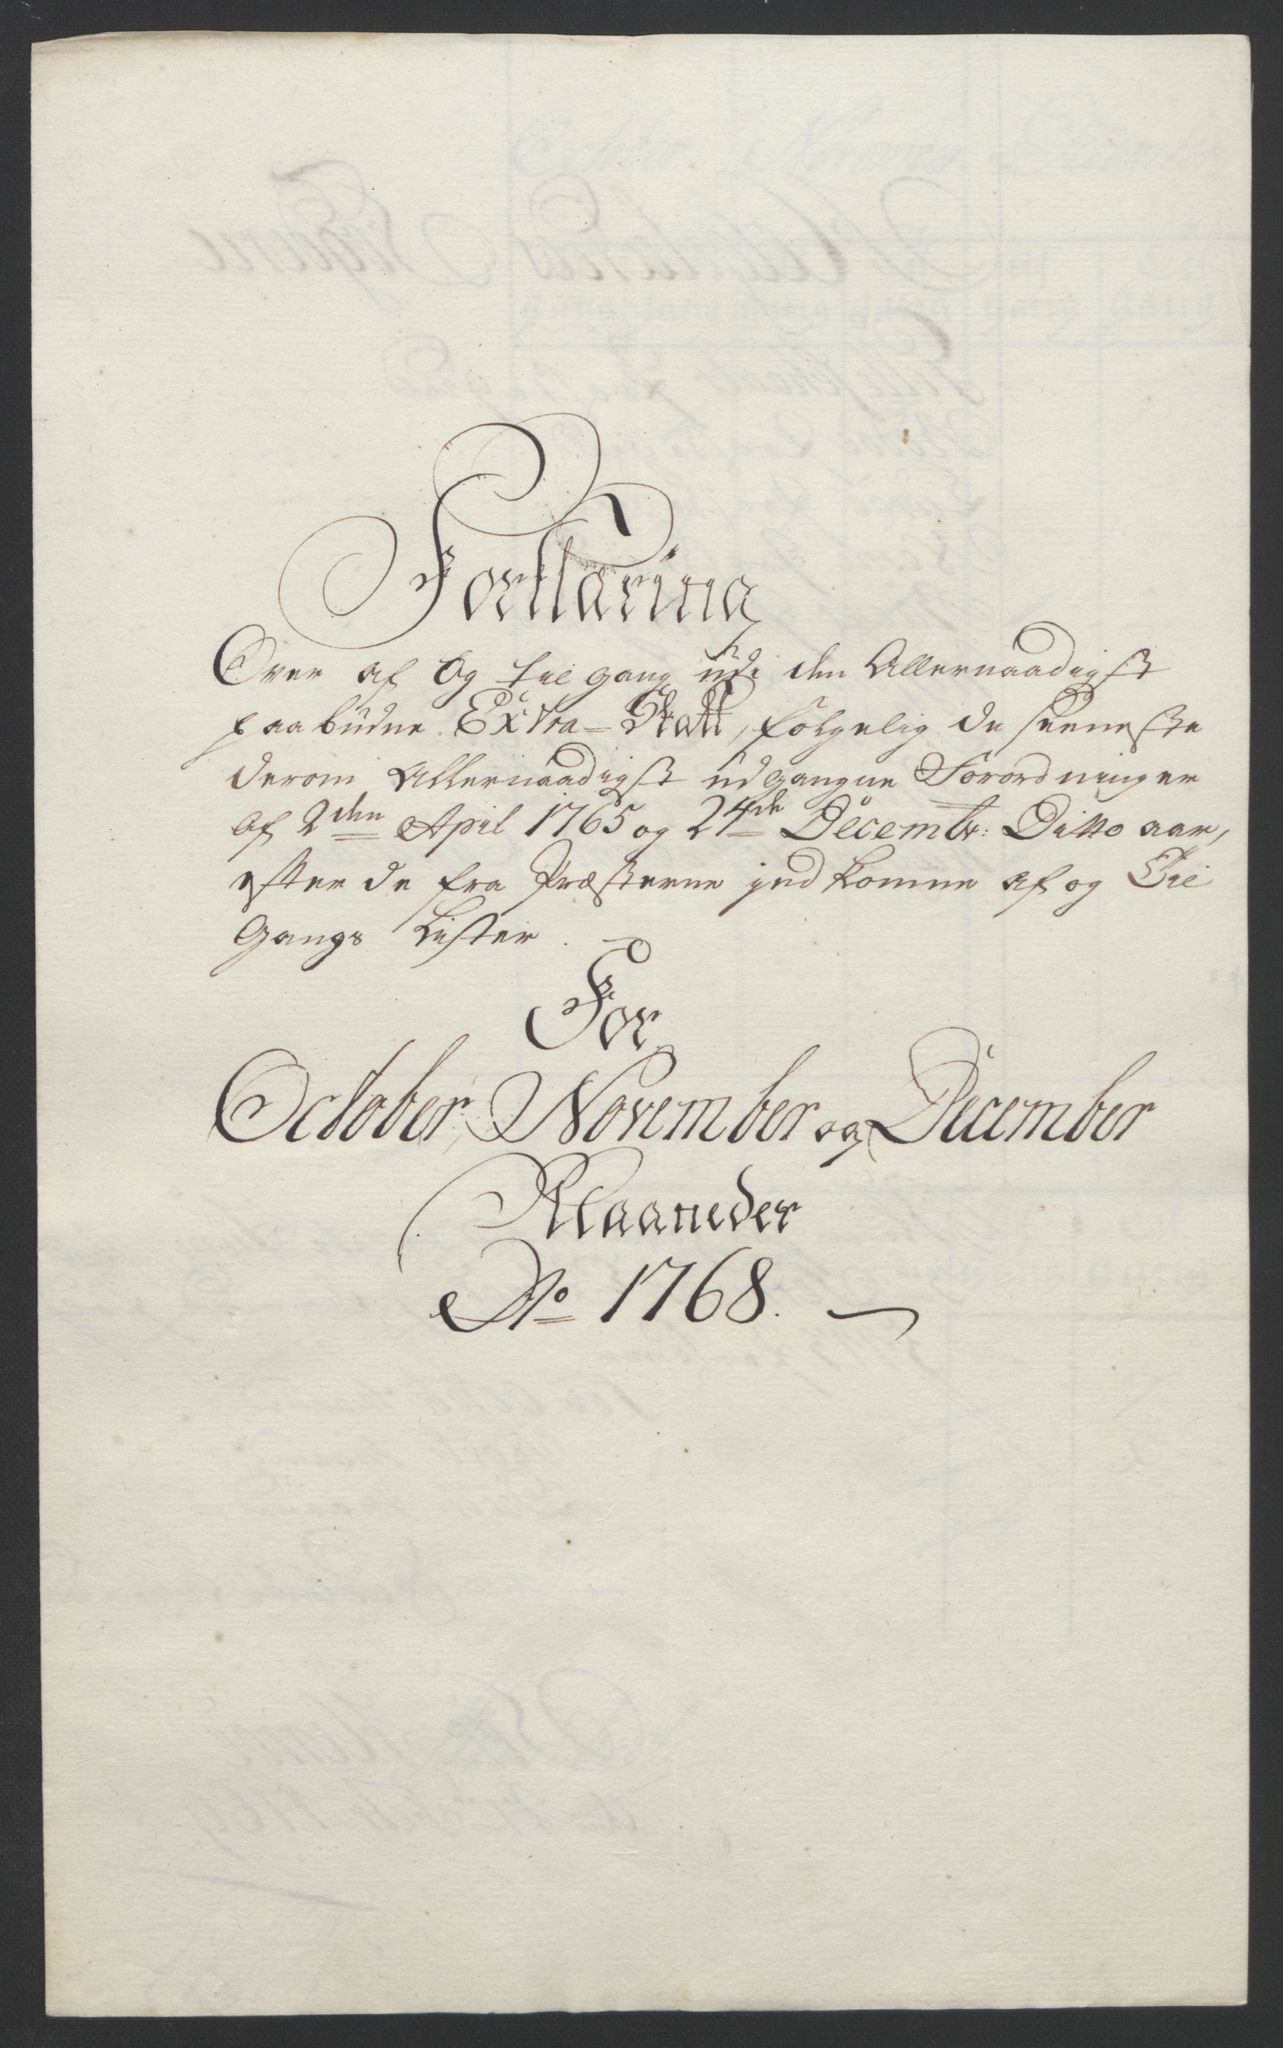 Forklaring
Over af og til gang udi den Allernaadigst
paabudne Extra-Skatt, følgelig de seeneste
derom Allernaadigst udgangne Forordninger
af 2den April 1765 og 24de Decembr: Ditto aar,
efter de fra Præsterne jndkomne af og Til
Gangs Lister.
For
October, November og December
Maaneder
Ao 1768.